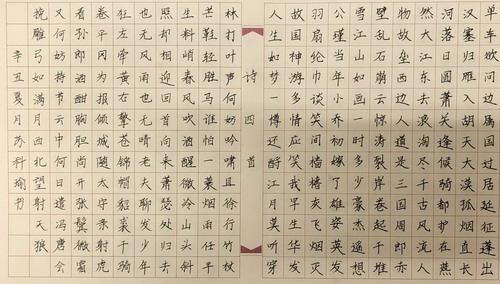 诗四首
单车欲问边属国过居延征蓬出
汉塞归雁入胡天大漠孤烟直长
河落日圆萧关逢候骑都护在燕
然大江东去浪淘尽千古风流人
物故垒西边人道是三国周郎赤
壁乱石崩云惊涛裂岸卷起千堆
雪江山如画一时多少豪杰遥想
公瑾当年小乔初嫁了雄姿英发
羽扇纶巾谈笑间樯橹灰飞烟灭
故国神游多情应笑我早生华发
人生如梦一樽还酹江月莫听穿
林打叶声何妨吟啸且徐行竹杖
芒鞋轻胜马谁怕一蓑烟雨任平
生料峭春风吹酒醒微冷山头斜
照却相迎回首向来萧瑟处归去
也无风雨也无晴老夫聊发少年
狂左牵黄右擎苍锦帽貂裘千骑
卷平冈为报倾城随太守亲射虎
看孙郎酒酣胸胆尚开张鬓微霜
又何妨持节云中何日遣冯唐会
挽雕弓如满月西北望射天狼
辛丑夏月苏科瑜书